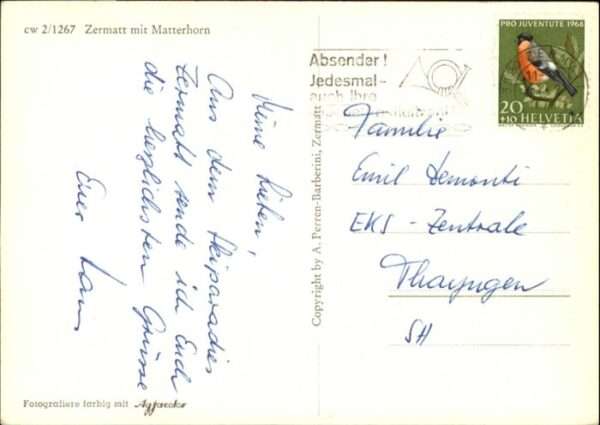 cw 2/1267 Zermatt mit Matterhorn
Meine Lieben,
Aus dem Skiparadies
Zermatt sende ich Euch
die herzlichsten Grüsse
Euer
Fotografiere farbig mit Agfacolor
Copyright by A. Perren-Barberini, Zermatt
Absender!
Jedesmal -
auch Ihre
PRO JUVENTUTE 1968
20
+10 HELVETIA
Familie
Emil Demonti
EKS - Zentrale
Thayngen
SH